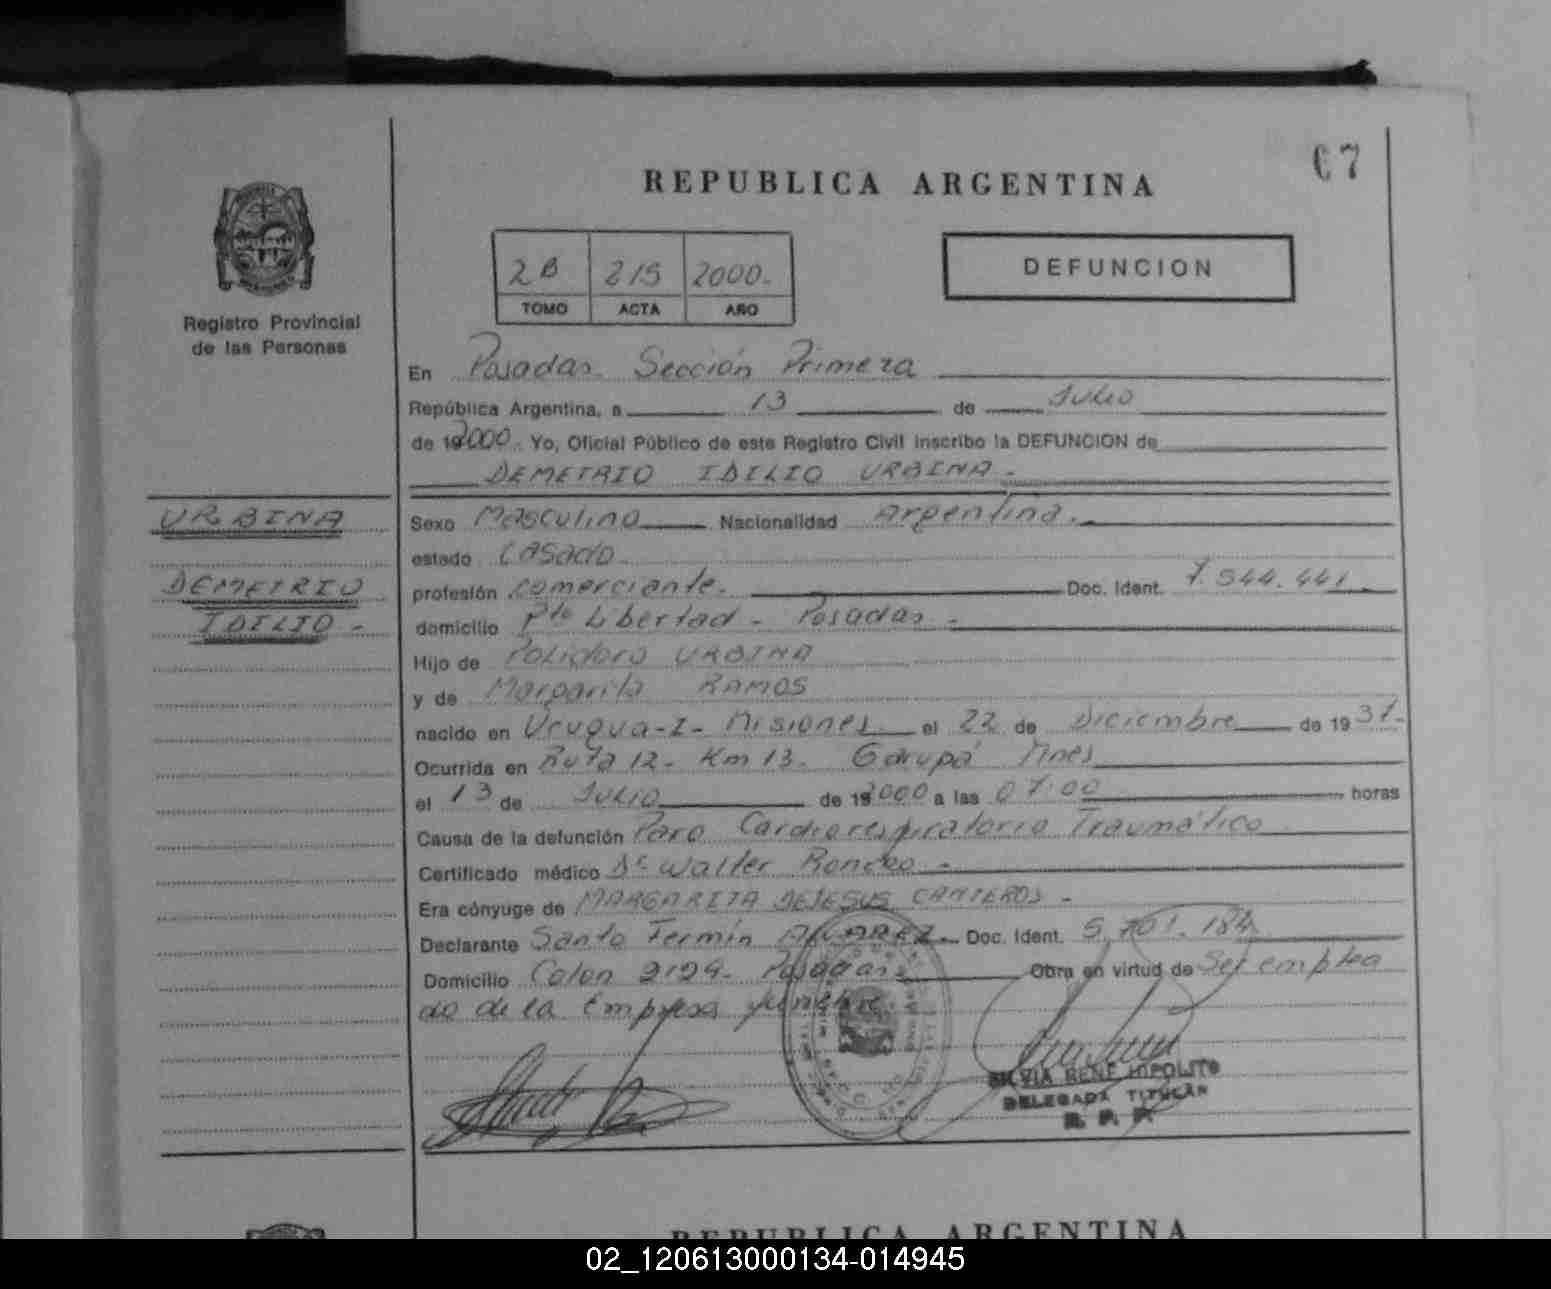 67
REPUBLICA ARGENTINA
2B 215 2000.
TOMO ACTA AÑO
DEFUNCION
Registro Provincial
de las Personas
En Posadas. Sección Primera
República Argentina, a 13 de Julio
de 192000. Yo, Oficial Público de este Registro Civil inscribo la DEFUNCION de
DEMETRIO IDILIO URBINA.-
URBINA
DEMETRIO
IDILIO.-
Sexo Masculino Nacionalidad Argentina.
estado Casado.
profesión comerciante. Doc. Ident. 7.544.441.
domicilio Pto Libertad - Posadas.-
Hijo de Polidoro URBINA
y de Margarita RAMOS
nacido en Urugua-I- Misiones. el 22 de Diciembre de 1937.-
Ocurrida en Ruta 12- Km 13. Garupá Mnes
el 13 de Julio de 192000 a las 07:00 horas
Causa de la defunción Paro Cardiorespiratorio Traumático
Certificado médico Dr Walter
Era cónyuge de MARGARITA DEJESUS CANTEROS.-
Declarante Santo Fermín ALVAREZ.- Doc. Ident. 5.701.184
Domicilio Colon 2129- Posadas. Obra en virtud de Ser emplea
do de la Empresa funebre.
SILVIA RENE HIPOLITO
DELEGADA TITULAR
R. P. P.
REPUBLICA ARGENTINA
02_120613000134-014945